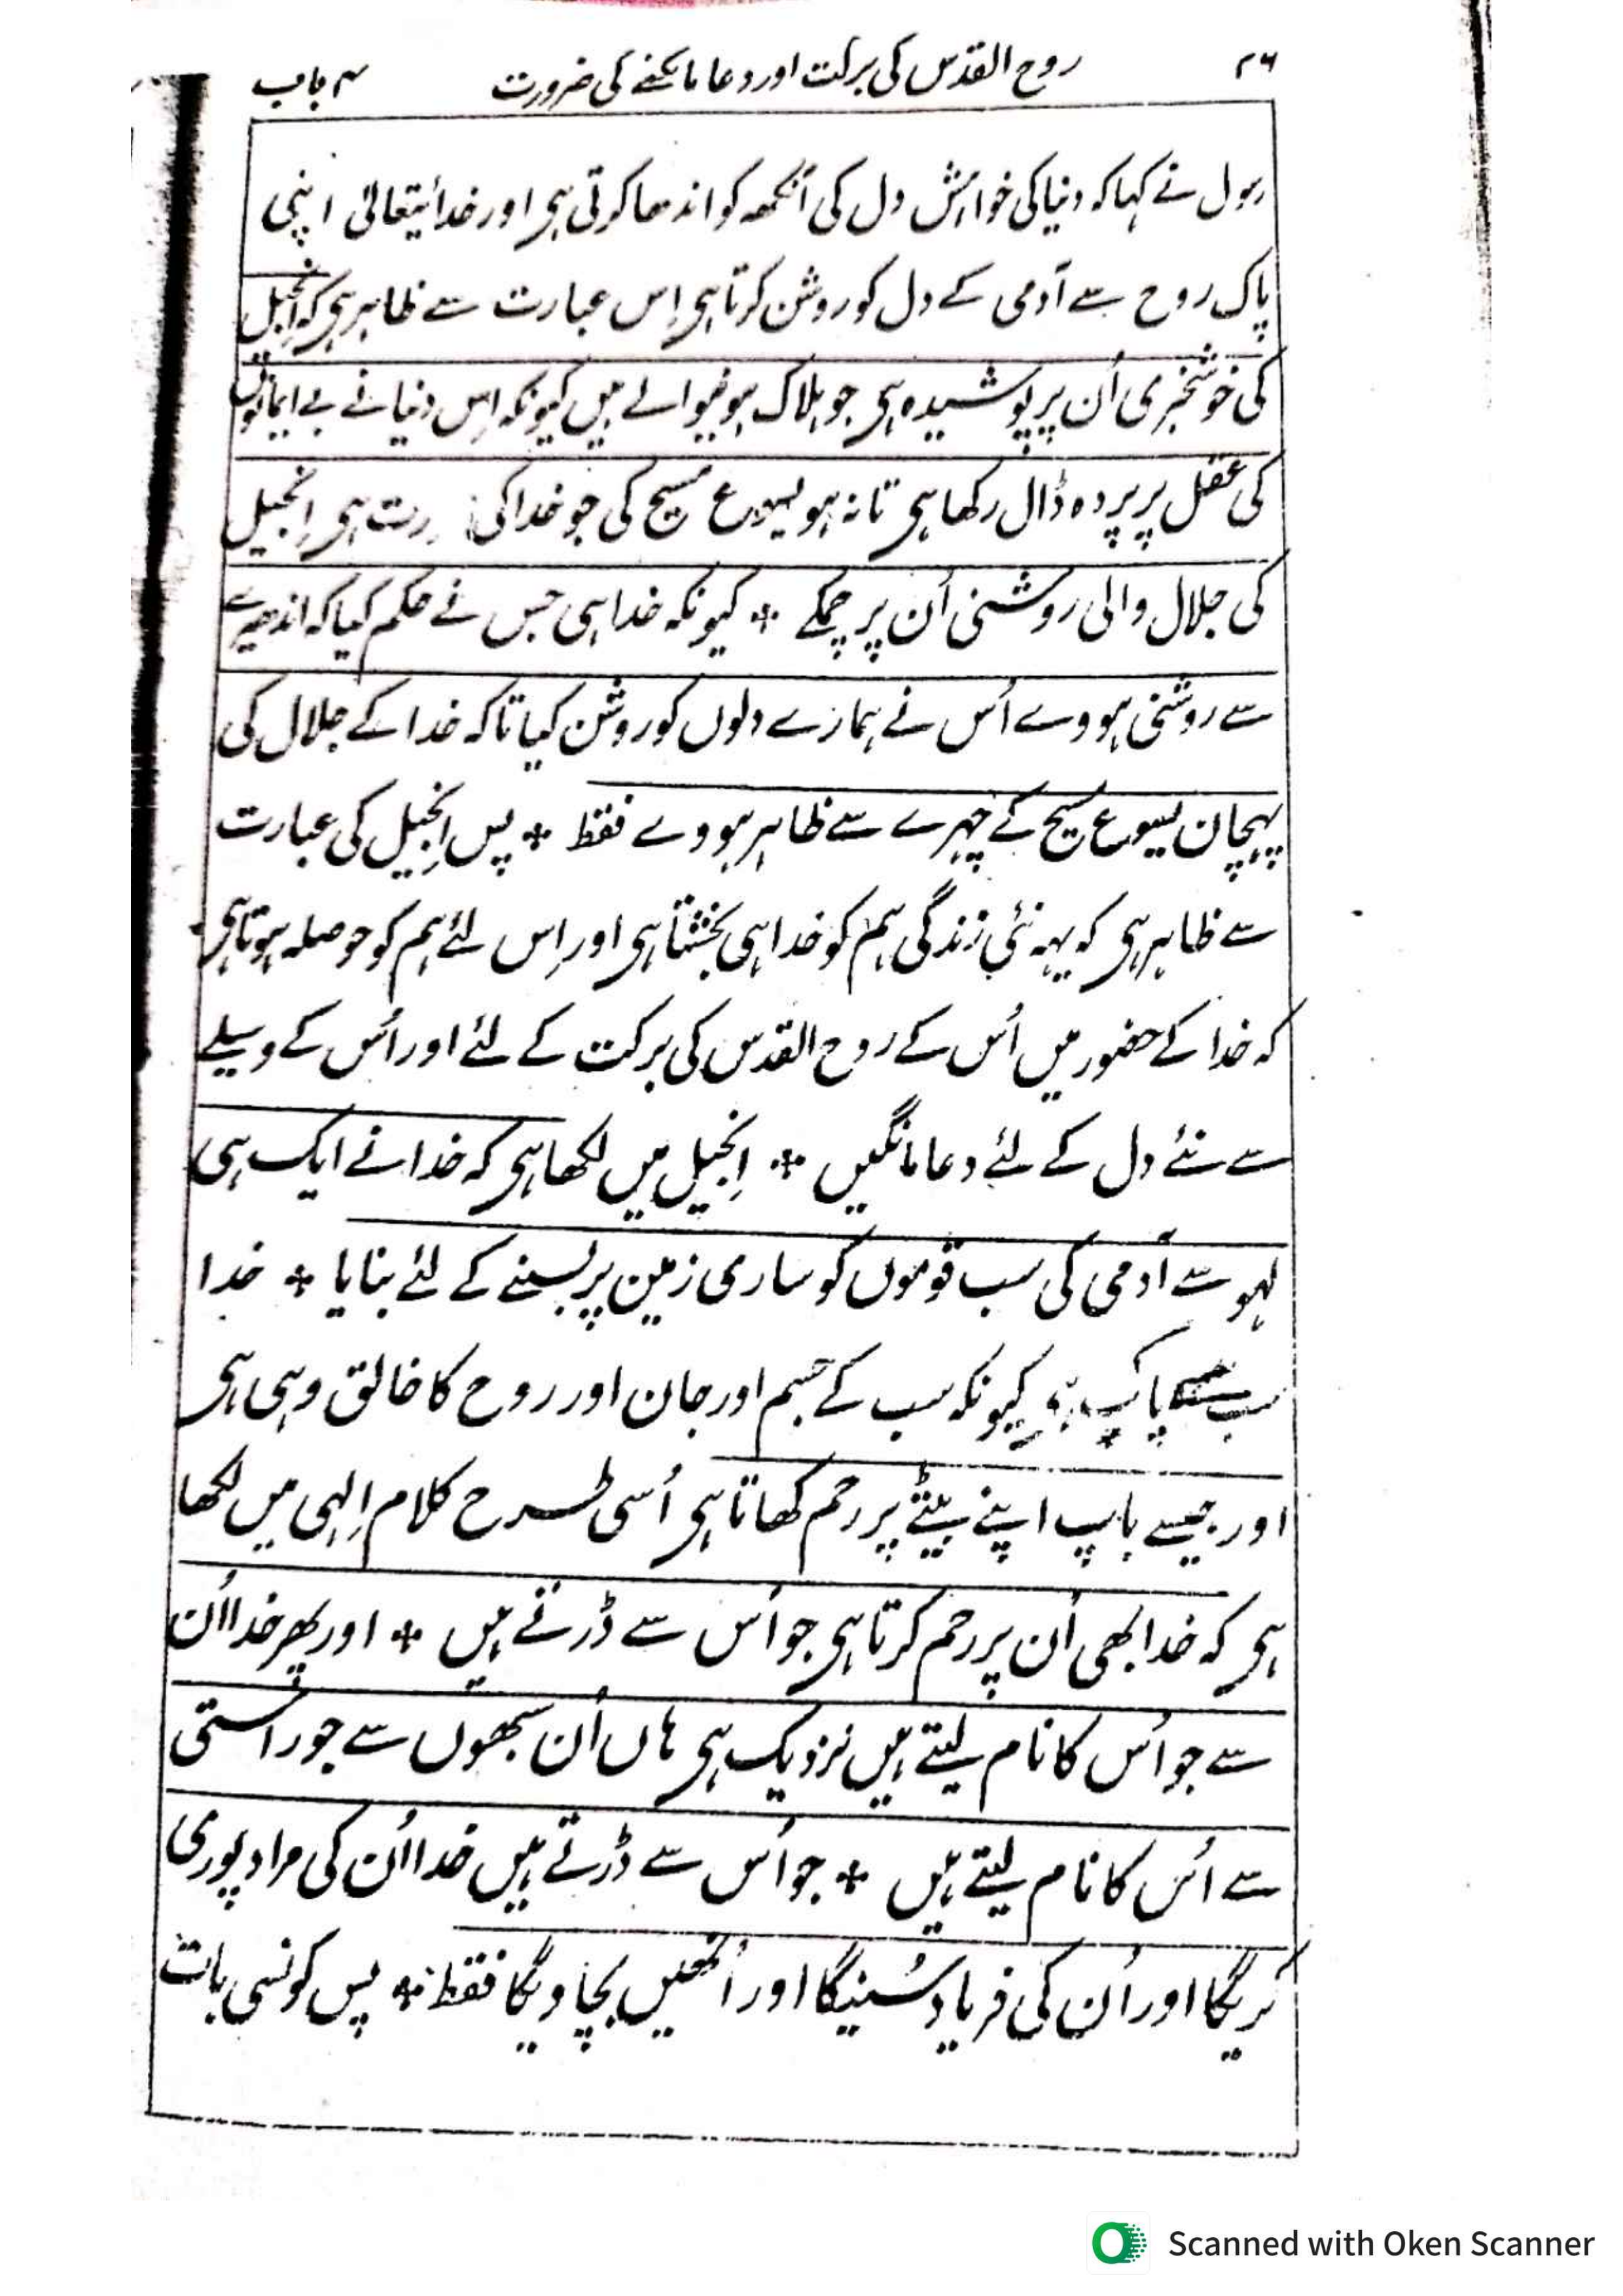 ۲۶ روح القدس کی برکت اور دعا مانگنے کی ضرورت ۴ باب
رسول نے کہا کہ دنیا کی خواہش دل کی آنکھہ کو اندھا کرتی ہی اور خدائیتعالیٰ اپنی
پاک روح سے آدمی کے دل کو روشن کرتا ہی اِس عبارت سے ظاہر ہی کہ اِنجیل
کی خوشخبری اُن پر پوشیدہ ہی جو ہلاک ہونیوالے ہیں کیونکہ اِس دنیا نے بے ایمانوں
کی عقل پر پردہ ڈال رکھا ہی تا نہ ہو یسوع مسیح کی جو خدا کی ہی اِنجیل
کی جلال والی روشنی اُن پر چمکے ٭ کیونکہ خدا ہی جس نے حکم کیا کہ اندھیرے
سے روشنی ہووے اُس نے ہمارے دلوں کو روشن کیا تاکہ خدا کے جلال کی
پہچان یسوع مسیح کے چہرے سے ظاہر ہووے فقط ٭ پس اِنجیل کی عبارت
سے ظاہر ہی کہ یہہ نئی زندگی ہم کو خدا ہی بخشتا ہی اور اِس لئے ہم کو حوصلہ ہوتا ہی
کہ خدا کے حضور میں اُس کے روح القدس کی برکت کے لئے اور اُس کے وسیلے
سے نئے دل کے لئے دعا مانگیں ٭ اِنجیل میں لکھا ہی کہ خدا نے ایک ہی
لہو سے آدمی کی سب قوموں کو ساری زمین پر بسنے کے لئے بنایا ٭ خدا
سب ہی کیونکہ سب کے جسم اور جان اور روح کا خالق وہی ہی
اور جیسے باپ اپنے بیٹے پر رحم کھاتا ہی اُسی طرح کلام اِلہی میں لکھا
ہی کہ خدا بھی اُن پر رحم کرتا ہی جو اُس سے ڈرتے ہیں ٭ اور پھر خدا اُن
سے جو اُس کا نام لیتے ہیں نزدیک ہی ہاں اُن سبھوں سے جو راستی
سے اُس کا نام لیتے ہیں ٭ جو اُس سے ڈرتے ہیں خدا اُن کی مراد پوری
کریگا اور اُن کی فریاد سُنیگا اور اُنھیں بچاویگا فقط ٭ پس کونسی بات
Scanned with Oken Scanner